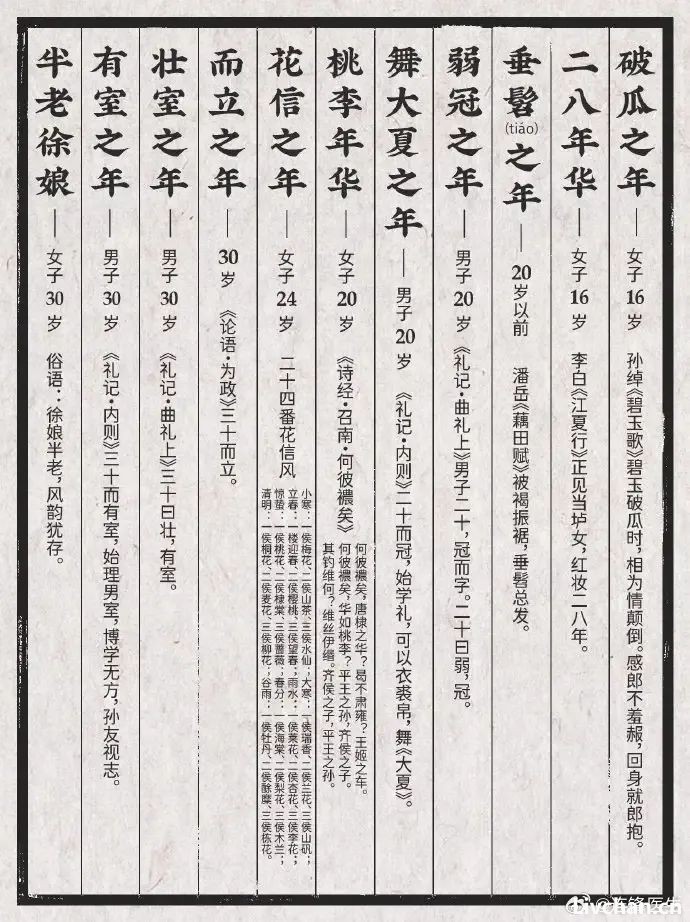 破瓜之年——女子16岁 孙绰《碧玉歌》碧玉破瓜时，相为情颠倒。感郎不羞赧，回身就郎抱。
二八年华——女子16岁 李白《江夏行》正见当垆女，红妆二八年。
垂髫(tiáo)之年——20岁以前 潘岳《藕田赋》被褐振裾，垂髫总发。
弱冠之年——男子20岁 《礼记·曲礼上》男子二十，冠而字。二十曰弱，冠。
舞大夏之年——男子20岁 《礼记·内则》二十而冠，始学礼，可以衣裘帛，舞《大夏》。
桃李年华——女子20岁 《诗经·召南·何彼襛矣》
何彼襛矣，唐棣之华？曷不肃雍？王姬之车。
何彼襛矣，华如桃李？平王之孙，齐侯之子。
其钓维何？维丝伊缗。齐侯之子，平王之孙。
花信之年——女子24岁 二十四番花信风
小寒：一侯梅花、二侯山茶、三侯水仙；大寒：一侯瑞香、二侯兰花、三侯山矾；
立春：一侯迎春、二侯樱桃、三侯望春；雨水：一侯菜花、二侯杏花、三侯李花；
惊蛰：一侯桃花、二侯棣棠、三侯蔷薇；春分：一侯海棠、二侯梨花、三侯木兰；
清明：一侯桐花、二侯麦花、三侯柳花；谷雨：一侯牡丹、二侯酴糜、三侯楝花。
而立之年——30岁 《论语·为政》三十而立。
壮室之年——男子30岁 《礼记·曲礼上》三十曰壮，有室。
有室之年——男子30岁 《礼记·内则》三十而有室，始理男室，博学无方，孙友视志。
半老徐娘——女子30岁 俗语：徐娘半老，风韵犹存。